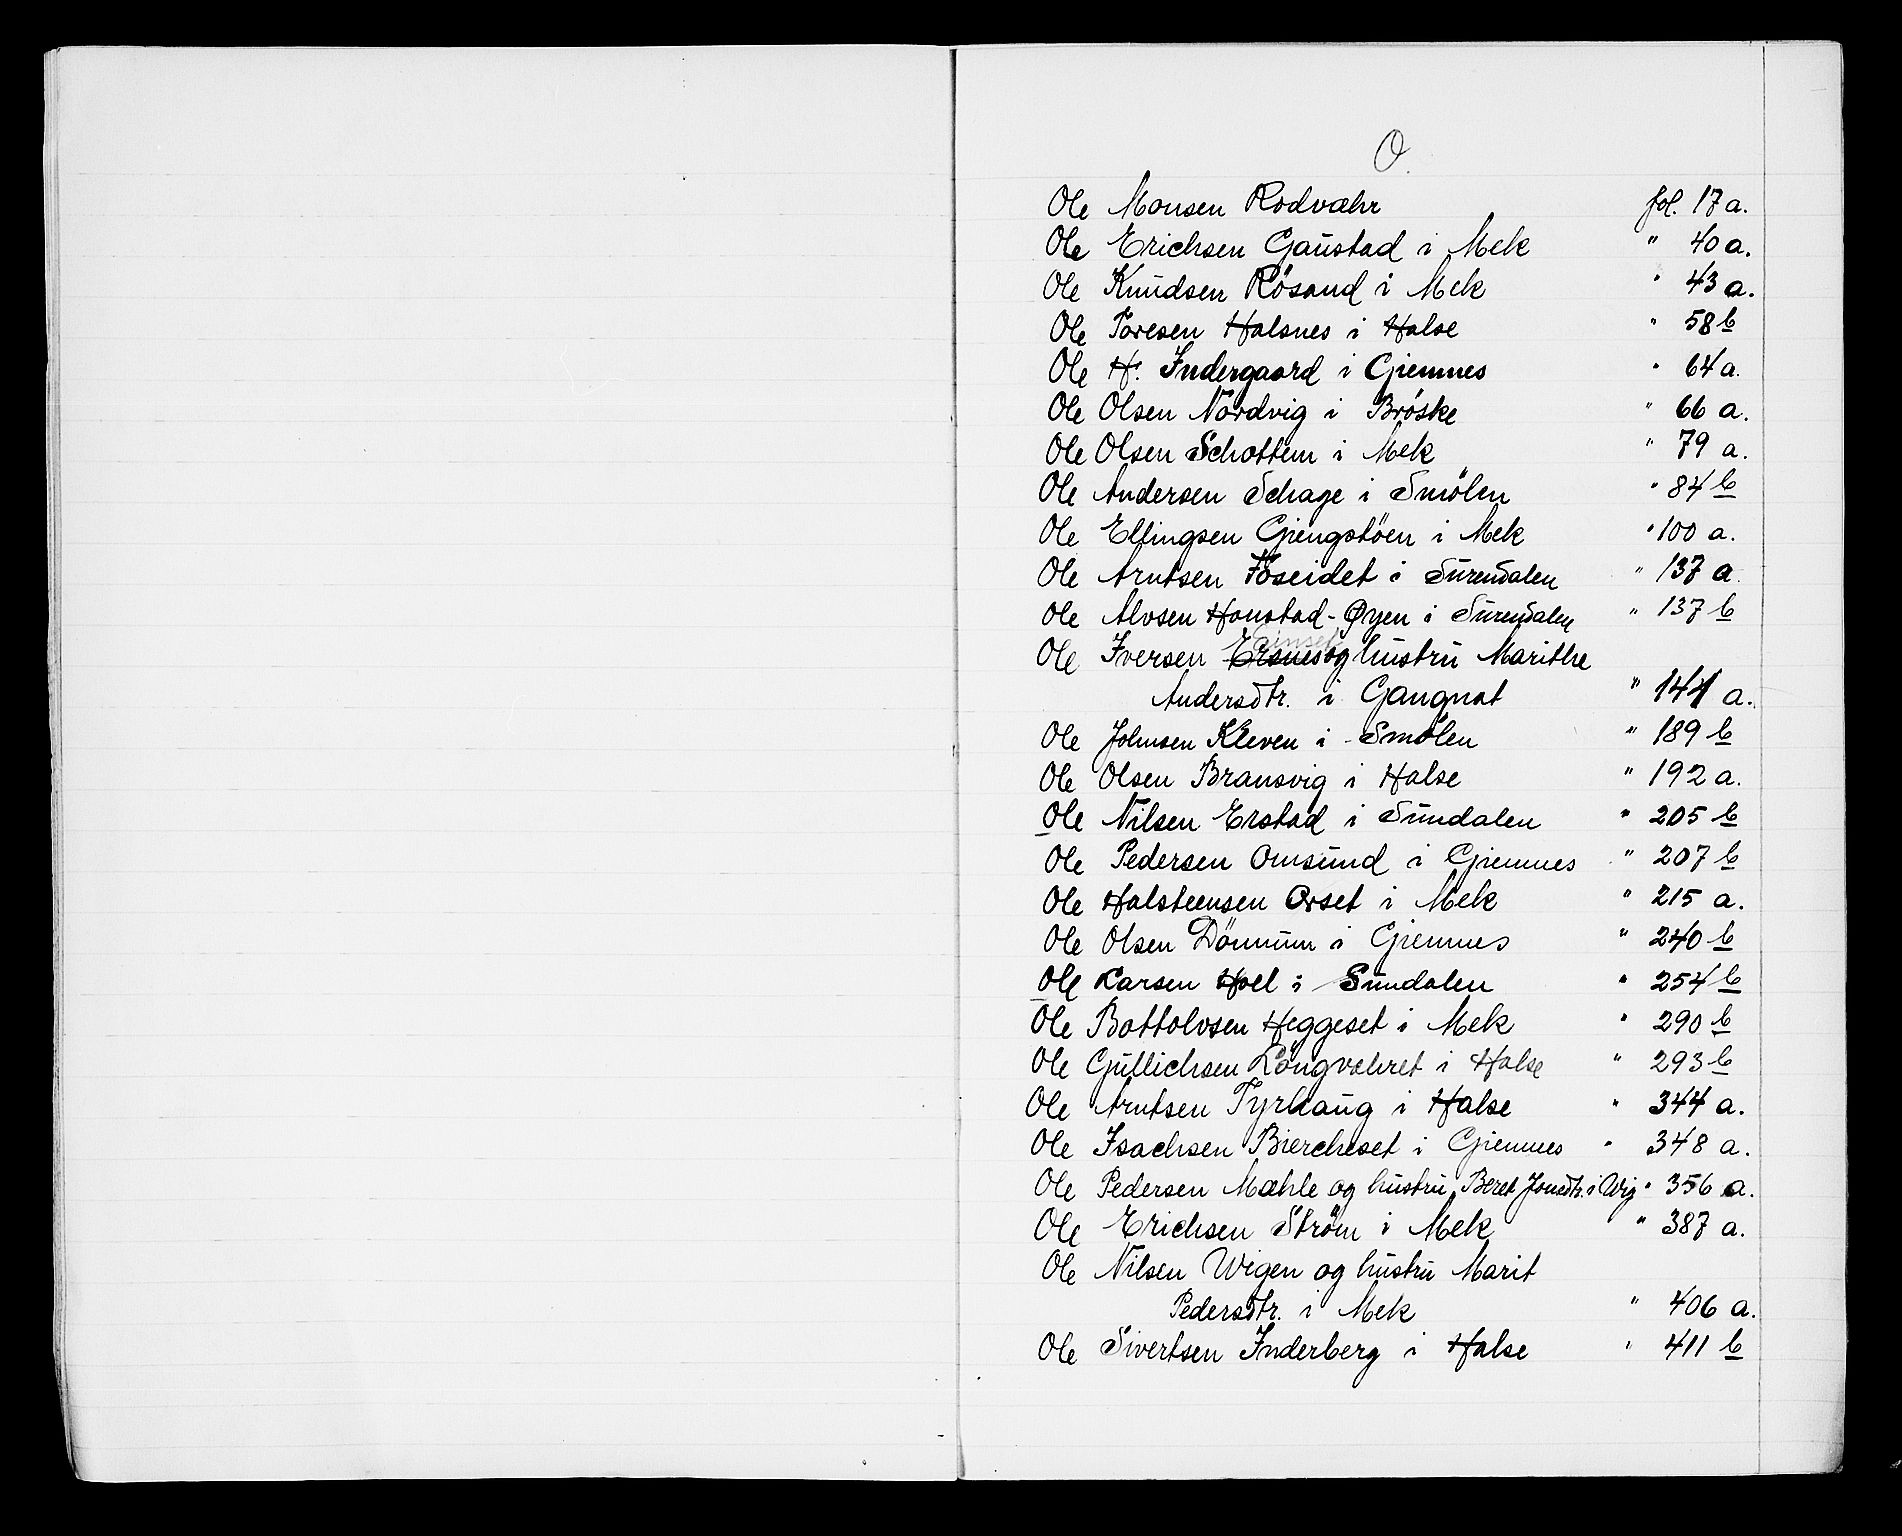 O.
Ole Monsen Rodvæhr fol. 17 a.
Ole Erichsen Gaustad i Mek " 40 a.
Ole Knudsen Rösand i Mek " 43 a.
Ole Toresen Halsnes i Halse " 58 b
Ole H. Indergaard i Gjemnes " 64 a.
Ole Olsen Nordvig i Bröske " 66 a.
Ole Olsen Schottem i Mek " 79 a.
Ole Andersen Schage i Smölen " 84 b
Ole Ellingsen Gjengstöen i Mek " 100 a.
Ole Arntsen Föseidet i Surendalen " 137 a
Ole Alvsen Honstad-Øyen i Surendalen " 137 b
Ole Iversen Ersnes og hustru Marithe
Andersdtr. i Gangnat " 141 a.
Ole Johnsen Kleven i Smölen " 189 b
Ole Olsen Bransvig i Halse " 192 a.
Ole Nilsen Erstad i Sundalen " 205 b
Ole Pedersen Omsund i Gjemnes " 207 b
Ole Halsteensen Orset i Mek " 215 a.
Ole Olsen Dönnum i Gjemnes " 240 b
Ole Larsen Hoel i Sundalen " 254 b
Ole Bottolvsen Heggeset i Mek " 290 b
Ole Gullichsen Langvahret i Halse " 293 b
Ole Arntsen Tyrhaug i Halse " 344 a.
Ole Isachsen Biercheset i Gjemnes " 348 a.
Ole Pedersen Mæhle og hustru Beret Jonsdtr. i Wig " 356 a.
Ole Erichsen Ström i Mek " 387 a.
Ole Nilsen Wigen og hustru Marit
Pedersdtr. i Mek " 406 a.
Ole Sivertsen Inderberg i Halse " 411 b